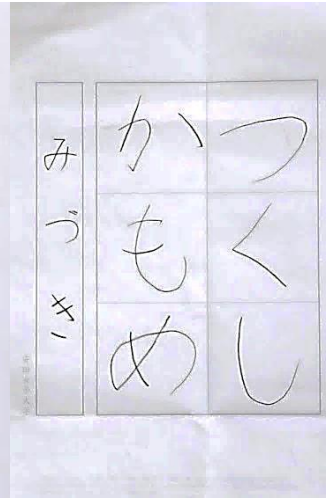 つくし
かもめ
みづき